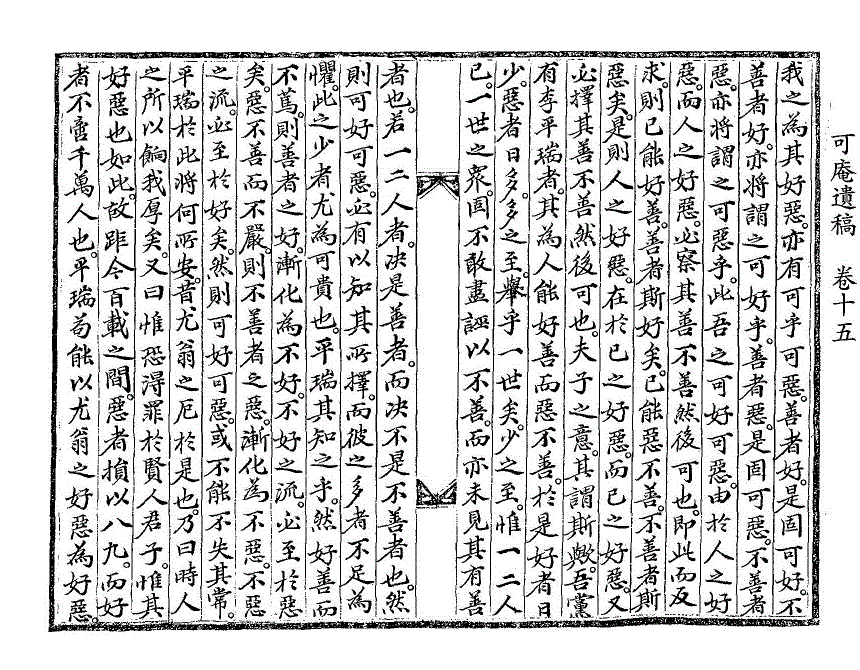 可庵遺稿 卷十五
我之為其好惡亦有可乎可惡善者好是固可好不
善者好亦將謂之可好乎善者惡是固可惡不善者
惡亦將謂之可惡乎此吾之可好可惡由於人之好
惡而人之好惡必察其善不善然後可也即此而反
求則已能好善善者斯好矣已能惡不善不善者斯
惡矣是則人之好惡在於已之好惡而已之好惡又
必擇其善不善然後可也夫子之意其謂斯歟吾黨
有李平瑞者其為人能好善而惡不善於是好者日
少惡者日多多之至舉乎一世矣少之至惟一二人
已一世之衆固不敢盡誣以不善而亦未見其有善
者也若一二人者决是善者而决不是不善者也然
則可好可惡必有以知其所擇而彼之多者不足為
懼此之少者尤為可貴也平瑞其知之乎然好善而
不篤則善者之好漸化為不好不好之流必至於惡
矣惡不善而不嚴則不善者之惡漸化為不惡不惡
之流必至於好矣然則可好可惡或不能不失其常
平瑞於此將何所安昔尤翁之厄於是也乃曰時人
之所以餉我厚矣又曰惟恐淂罪於賢人君子惟其
好惡也如此故距今百載之間惡者損以八九而好
者不啻千萬人也平瑞苟能以尤翁之好惡為好惡